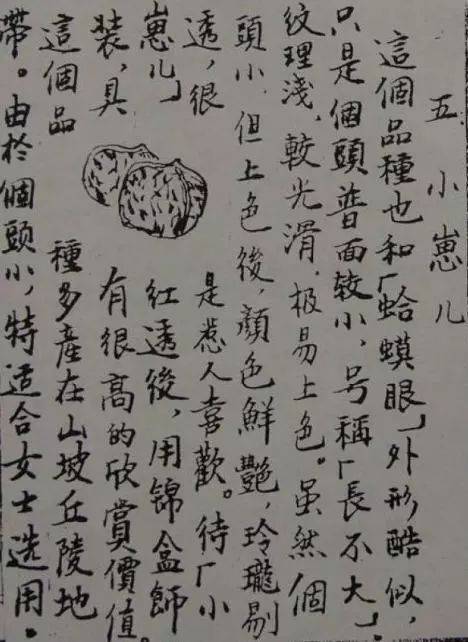 五 小崽儿
這個品種也和「蛤蟆眼」外形酷似，
只是個頭普面较小，号稱「長不大」
纹理淺，較光滑，极易上色。虽然個
頭小，但上色後，顏色鮮艷，玲瓏剔
透，很是惹人喜歡。待「小
崽儿」红透後，用锦盒飾
装，具有很高的欣賞價值。
這個品種多產在山坡丘陵地
帶。由於個頭小，特适合女士选用。